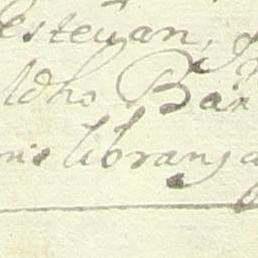 esteuan,
ldho Bar
mis libranza